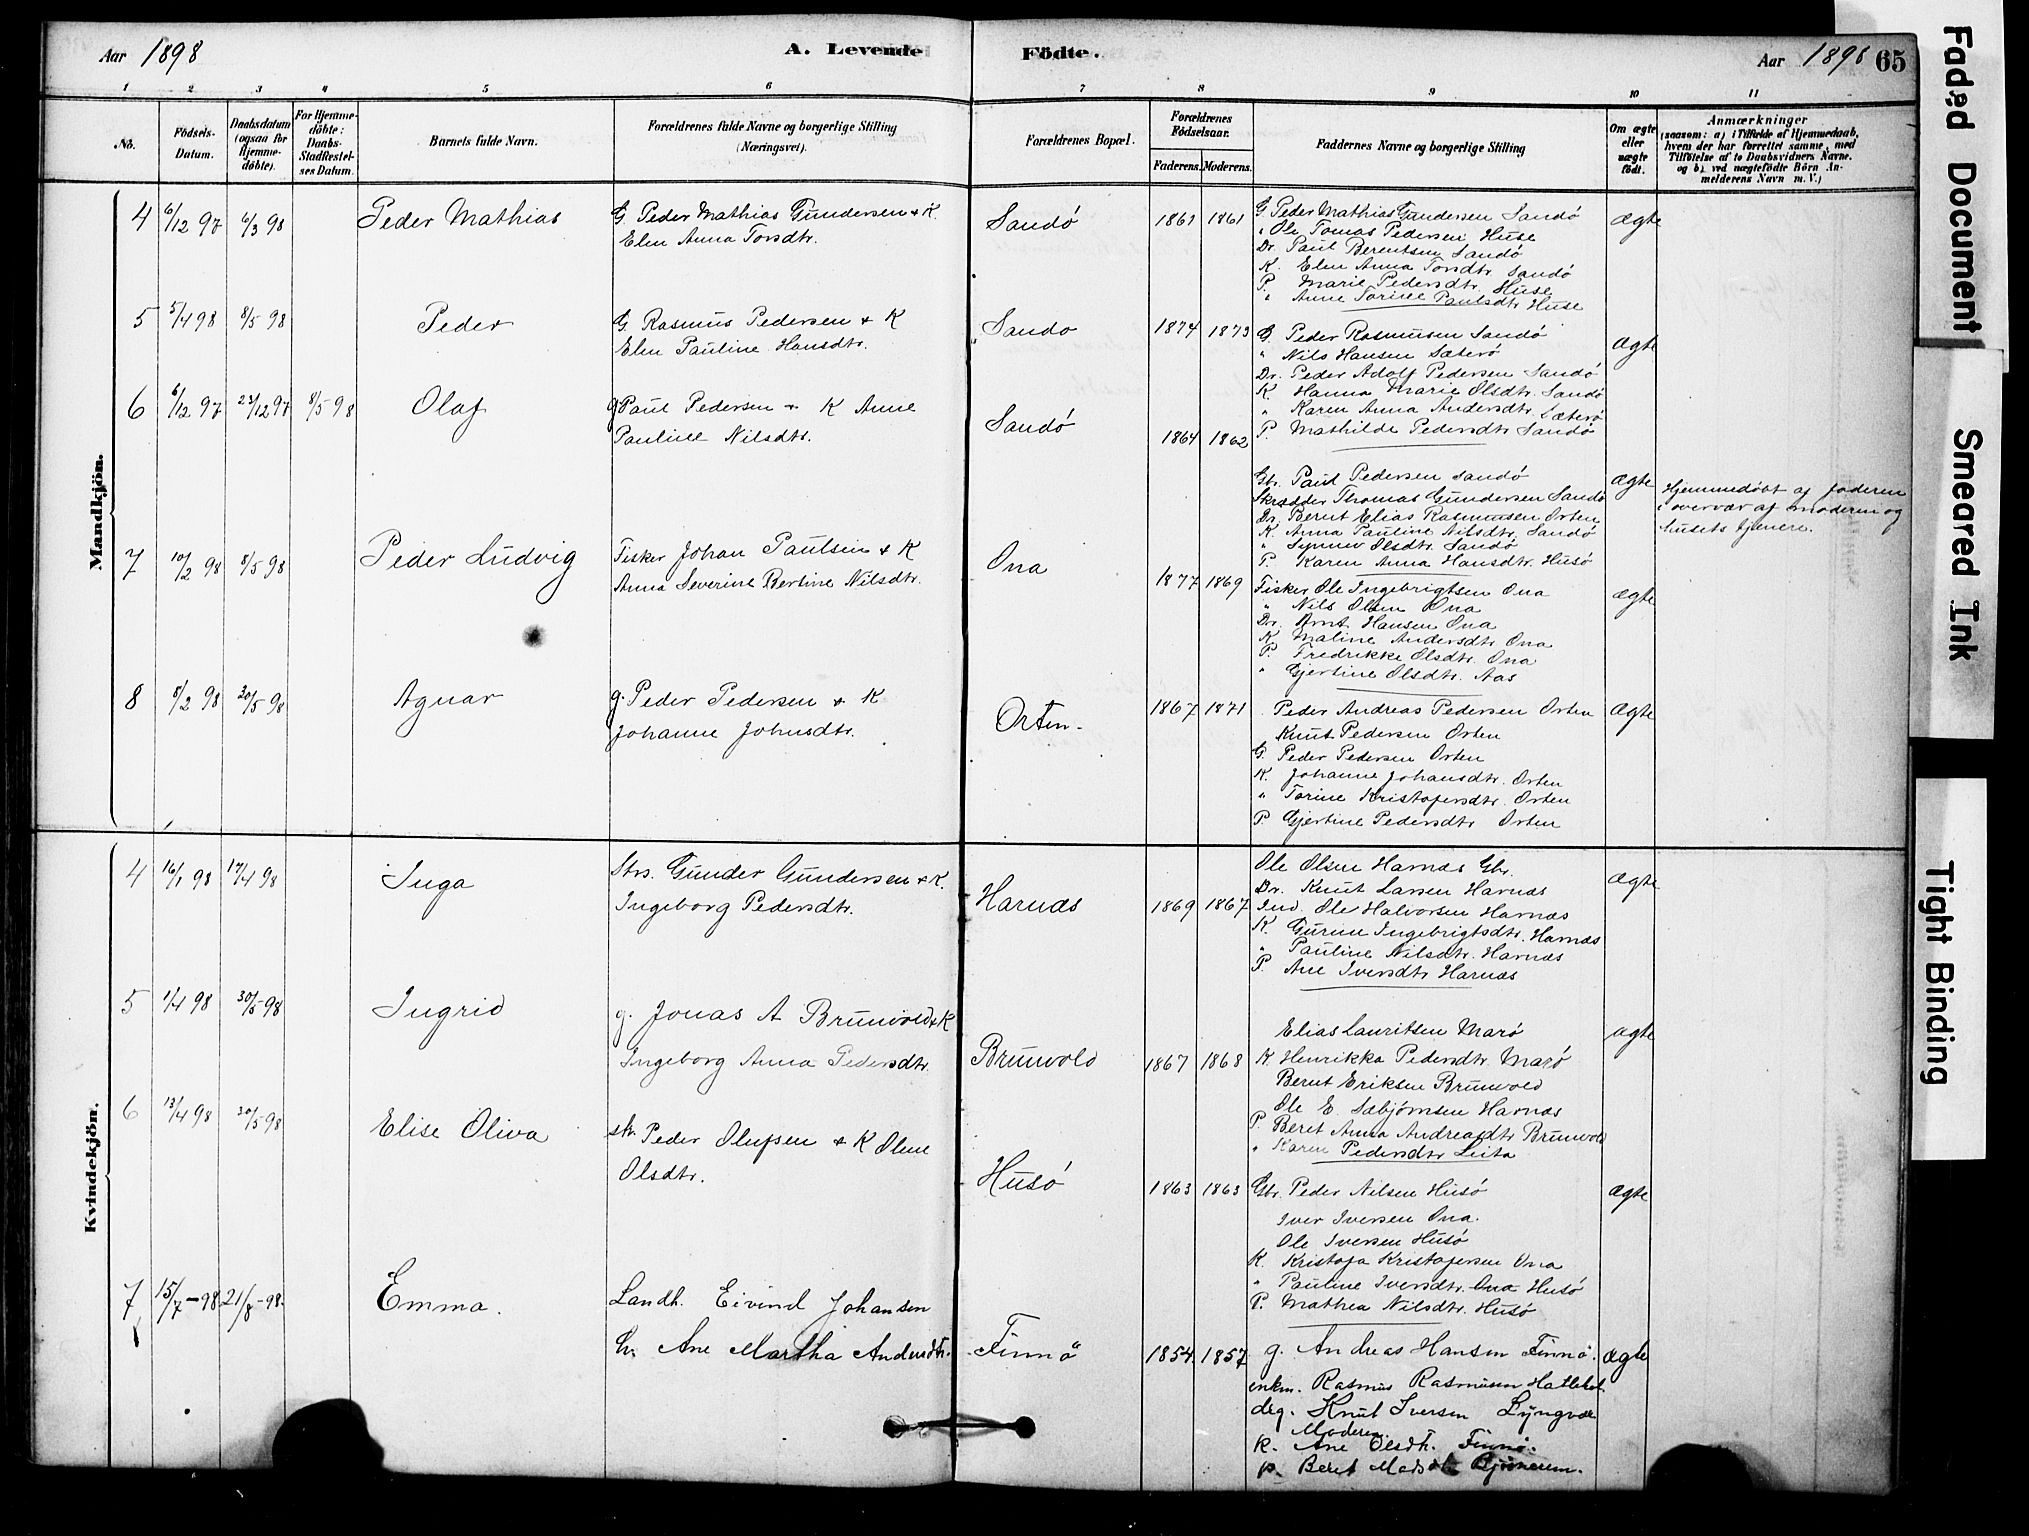 Aar 1898
A. Levende Födte.
Aar 1898 65
1 2 3 4 5 6 7 8 9 10 11
No.
Födsels-Datum.
Daabsdatum (ogsaa for Hjemme-döbte).
For Hjemme-döbte: Daabs-Stadfestel-ses Datum.
Barnets fulde Navn.
Forældrenes fulde Navne og borgerlige Stilling (Næringsvei).
Forældrenes Bopæl.
Forældrenes Födselsaar.
Faderens. Moderens.
Faddernes Navne og borgerlige Stilling
Om ægte eller uægte födt.
Anmærkninger
(saasom: a) i Tilfælde af Hjemmedaab, hvem der har forrettet samme, med Tilföielse af to Daabsvidners Navne, og b) ved uægtefödte Börn An-melderens Navn m. V.)
Mandkjön.
4 6/12 97 6/3 98 Peder Mathias
G Peder Mathias Gundersen & K.
Elen Anna Torsdtr.
Sandö 1861 1861
G Peder Mathias Gundersen Sandö
" Ole Tomas Pedersen Huse
Dr. Paul Berentsen Sandö
K. Elen Anna Torsdtr Sandö
P. Marie Pedersdtr. Huse
" Anne Torine Paulsdtr. Huse
ægte
5 5/4 98 8/5 98 Peder
G. Rasmus Pedersen & K
Elen Pauline Hansdtr.
Sandö 1874 1873
G. Peder Rasmussen Sandö
" Nils Hansen Sæterö
Dr. Peder Adolf Pedersen Sandö
K. Hanna Marie Olsdtr. Sandö
" Karen Anna Andersdtr. Sæterö
P. Mathilde Pedersdtr Sandö
ægte
6 6/12 97 23/12 97 8/5 98 Olaf
g Paul Pedersen & K Anne
Pauline Nilsdtr.
Sandö 1864 1862
Gbr. Paul Pedersen Sandö
Skrædder Thomas Gundersen Sandö
Dr. Bernt Elias Rasmussen Orten
K. Anna Pauline Nilsdtr. Sandö
" Synnev Olsdtr. Sandö
P. Karen Anna Hansdtr. Husö
ægte
Hjemmedöbt af faderen
i overvær af moderen og
husets tjenere.
7 10/2 98 8/5 98 Peder Ludvig
Fisker Johan Paulsen & K
Anna Severine Bertine Nilsdtr.
Ona 1877 1869
Fisker Ole Ingebrigtsen Ona
" Nils Olsen Ona
Dr. Arnt Hansen Ona
K. Maline Andersdtr. Ona
P. Fredrikke Olsdtr. Ona
" Gjertine Olsdtr. Aas
ægte
8 8/2 98 30/5 98 Agnar
g. Peder Pedersen & K
Johanne Johnsdtr.
Orten. 1867 1871
Peder Andreas Pedersen Orten
Knut Pedersen Orten
G. Peder Pedersen Orten
K. Johanne Johansdtr. Orten
" Torine Kristofersdtr. Orten
P. Gjertine Pedersdtr. Orten
ægte
Kvindekjön.
4 16/1 98 17/4 98 Inga
Strs. Gunder Gundersen & K.
Ingeborg Pedersdtr.
Harnæs 1869 1867
Ole Olsen Harnæs Gbr.
Dr. Knut Larsen Harnæs
Ind. Ole Halvorsen Harnæs
K. Guruu Ingebrigtsdtr. Harnæs
" Pauline Nilsdtr. Harnæs
P. Ane Iversdtr Harnæs
ægte
5 1/4 98 30/5 98 Ingrid
g. Jonas A Brunvold & K
Ingeborg Anna Pedersdtr.
Brunvold 1867 1868
Elias Lauritsen Marö
K. Henrikka Pedersdtr. Marö
Bernt Eriksen Brunvold
Ole E. Sæbjörnsen Harnæs
P. Beret Anna Andreasdtr. Brunvold
" Karen Pedersdtr Leita
ægte
6 13/4 98 30/5 98 Elise Oliva
str. Peder Olufsen & K Olene
Olsdtr.
Husö 1863 1863
Gbr. Peder Nilsen Husö
Iver Iversen Ona.
Ole Iversen Husö
K. Kristofa Kristofersen Ona
" Pauline Iversdtr. Ona Husö
P. Mathea Nilsdtr. Husö
ægte
7 15/7-98. 21/8-98. Emma.
Landh. Eivind Johansen
h. Ane Martha Andersdtr.
Finnö 1854. 1857
g. Andreas Hansen Finnö.
enkm. Rasmus Rasmussen Hatlebok
drg. Knut Iversen Lyngvær
Moderen.
k. Ane Olsdtr. Finnö.
p. Beret Madsdtr. Bjönerem.
ægte
Faded Document
Smeared Ink
Tight Binding